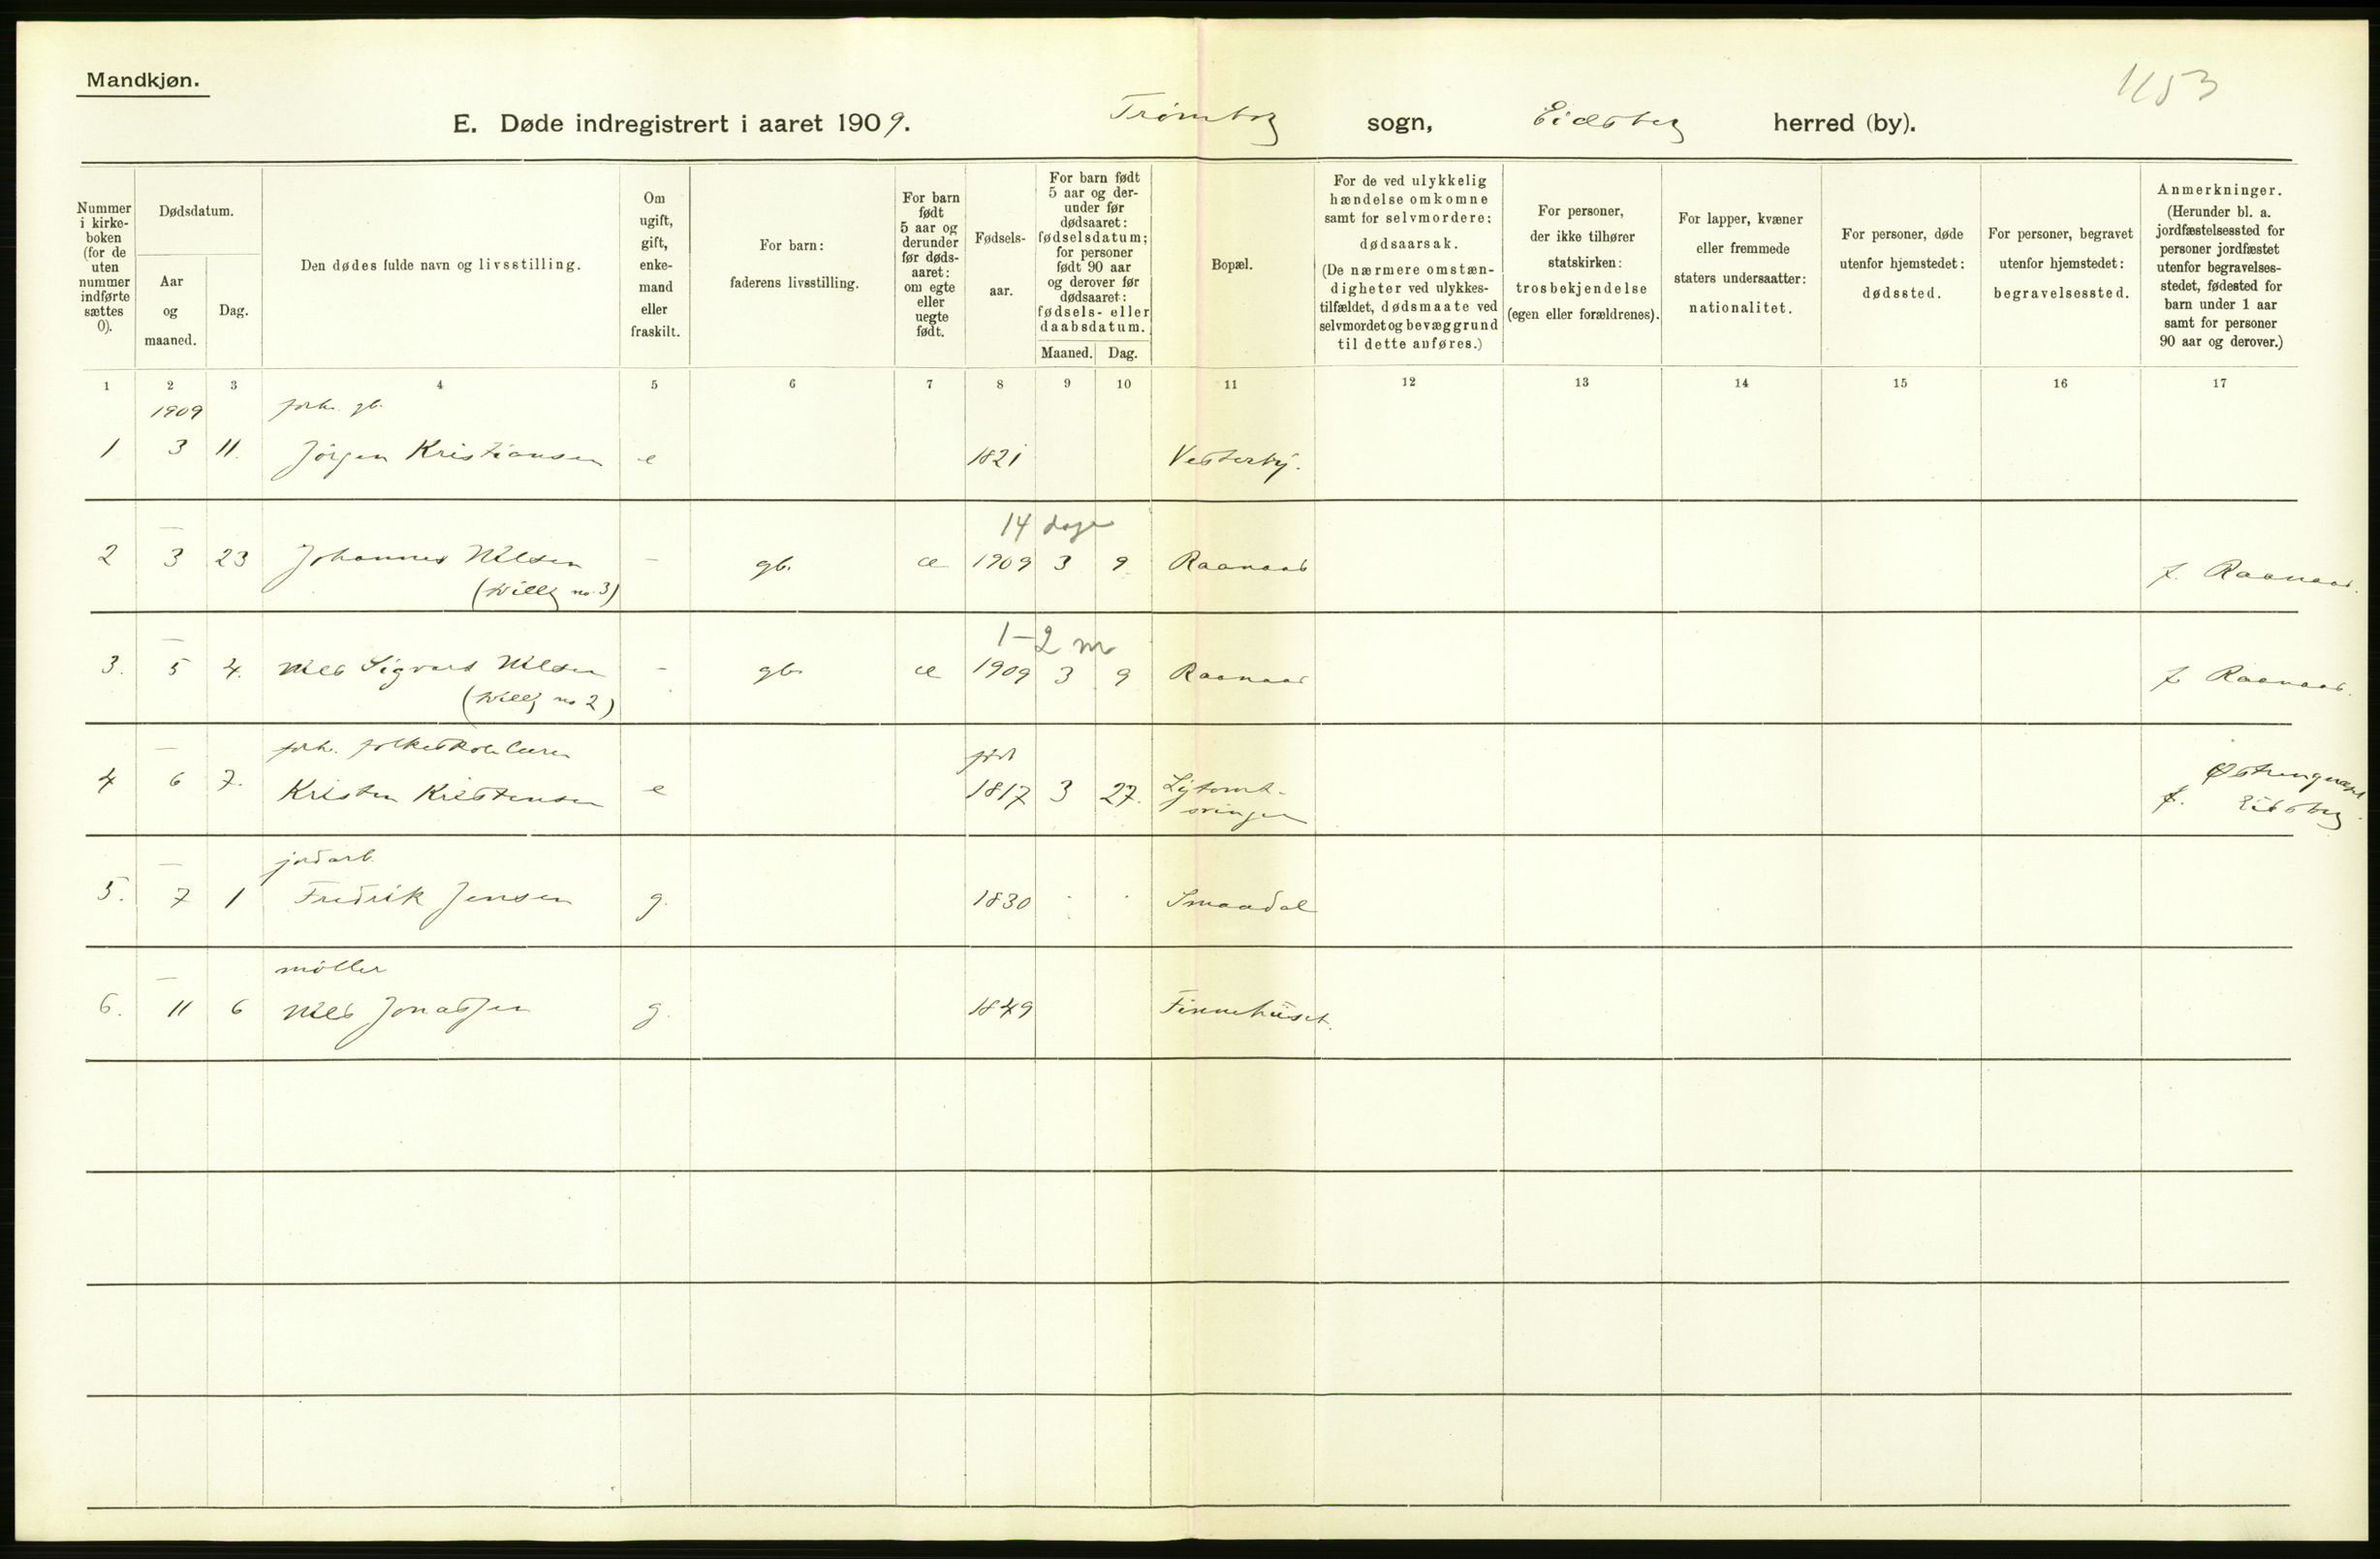 Mandkjøn.
1153
E. Døde indregistrert i aaret 1909. Trømborg sogn, Eidsberg herred (by).
Nummer i kirke-boken (for de uten nummer indførte sættes 0).
Dødsdatum.
Aar og maaned.
Dag.
Den dødes fulde navn og livsstilling.
Om ugift, gift, enke-mand eller fraskilt.
For barn: faderens livsstilling.
For barn født 5 aar og derunder før døds-aaret: om egte eller uegte født.
Fødsels-aar.
For barn født 5 aar og der-under før dødsaaret: fødselsdatum; for personer født 90 aar og derover før dødsaaret: fødsels- eller daabsdatum.
Maaned. Dag.
Bopæl.
For de ved ulykkelig hændelse omkomne samt for selvmordere: dødsaarsak. (De nærmere omstæn-digheter ved ulykkes-tilfældet, dødsmaate ved selvmordet og bevæggrund til dette anføres.)
For personer, der ikke tilhører statskirken: trosbekjendelse (egen eller forældrenes).
For lapper, kvæner eller fremmede staters undersaatter: nationalitet.
For personer, døde utenfor hjemstedet: dødssted.
For personer, begravet utenfor hjemstedet: begravelsessted.
Anmerkninger. (Herunder bl. a. jordfæstelsessted for personer jordfæstet utenfor begravelses-stedet, fødested for barn under 1 aar samt for personer 90 aar og derover.)
1 2 3 4 5 6 7 8 9 10 11 12 13 14 15 16 17
1909 forh. gb.
1 3 11. Jörgen Kristiansen e 1821 Vesterby.
— 14 dage
2 3 23 Johannes Nilsen - gb. æ 1909 3 9. Raanaas f. Raanaas.
(tvilling no. 3)
— 1-2 m
3. 5 4. Nils Sigvard Nilsen - gb. æ 1909 3 9 Raanaas f. Raanaas.
(tvilling no 2)
— forh. folkeskolelærer født
4 6 7. Kristen Kristensen e 1817 3 27. f. Eidsberg.
— jordarb.
5. 7 1 Fredrik Jensen g. 1830 Smaadal
— möller
6. 11 6 Nils Jonassen g. 1849 Finnehuset.